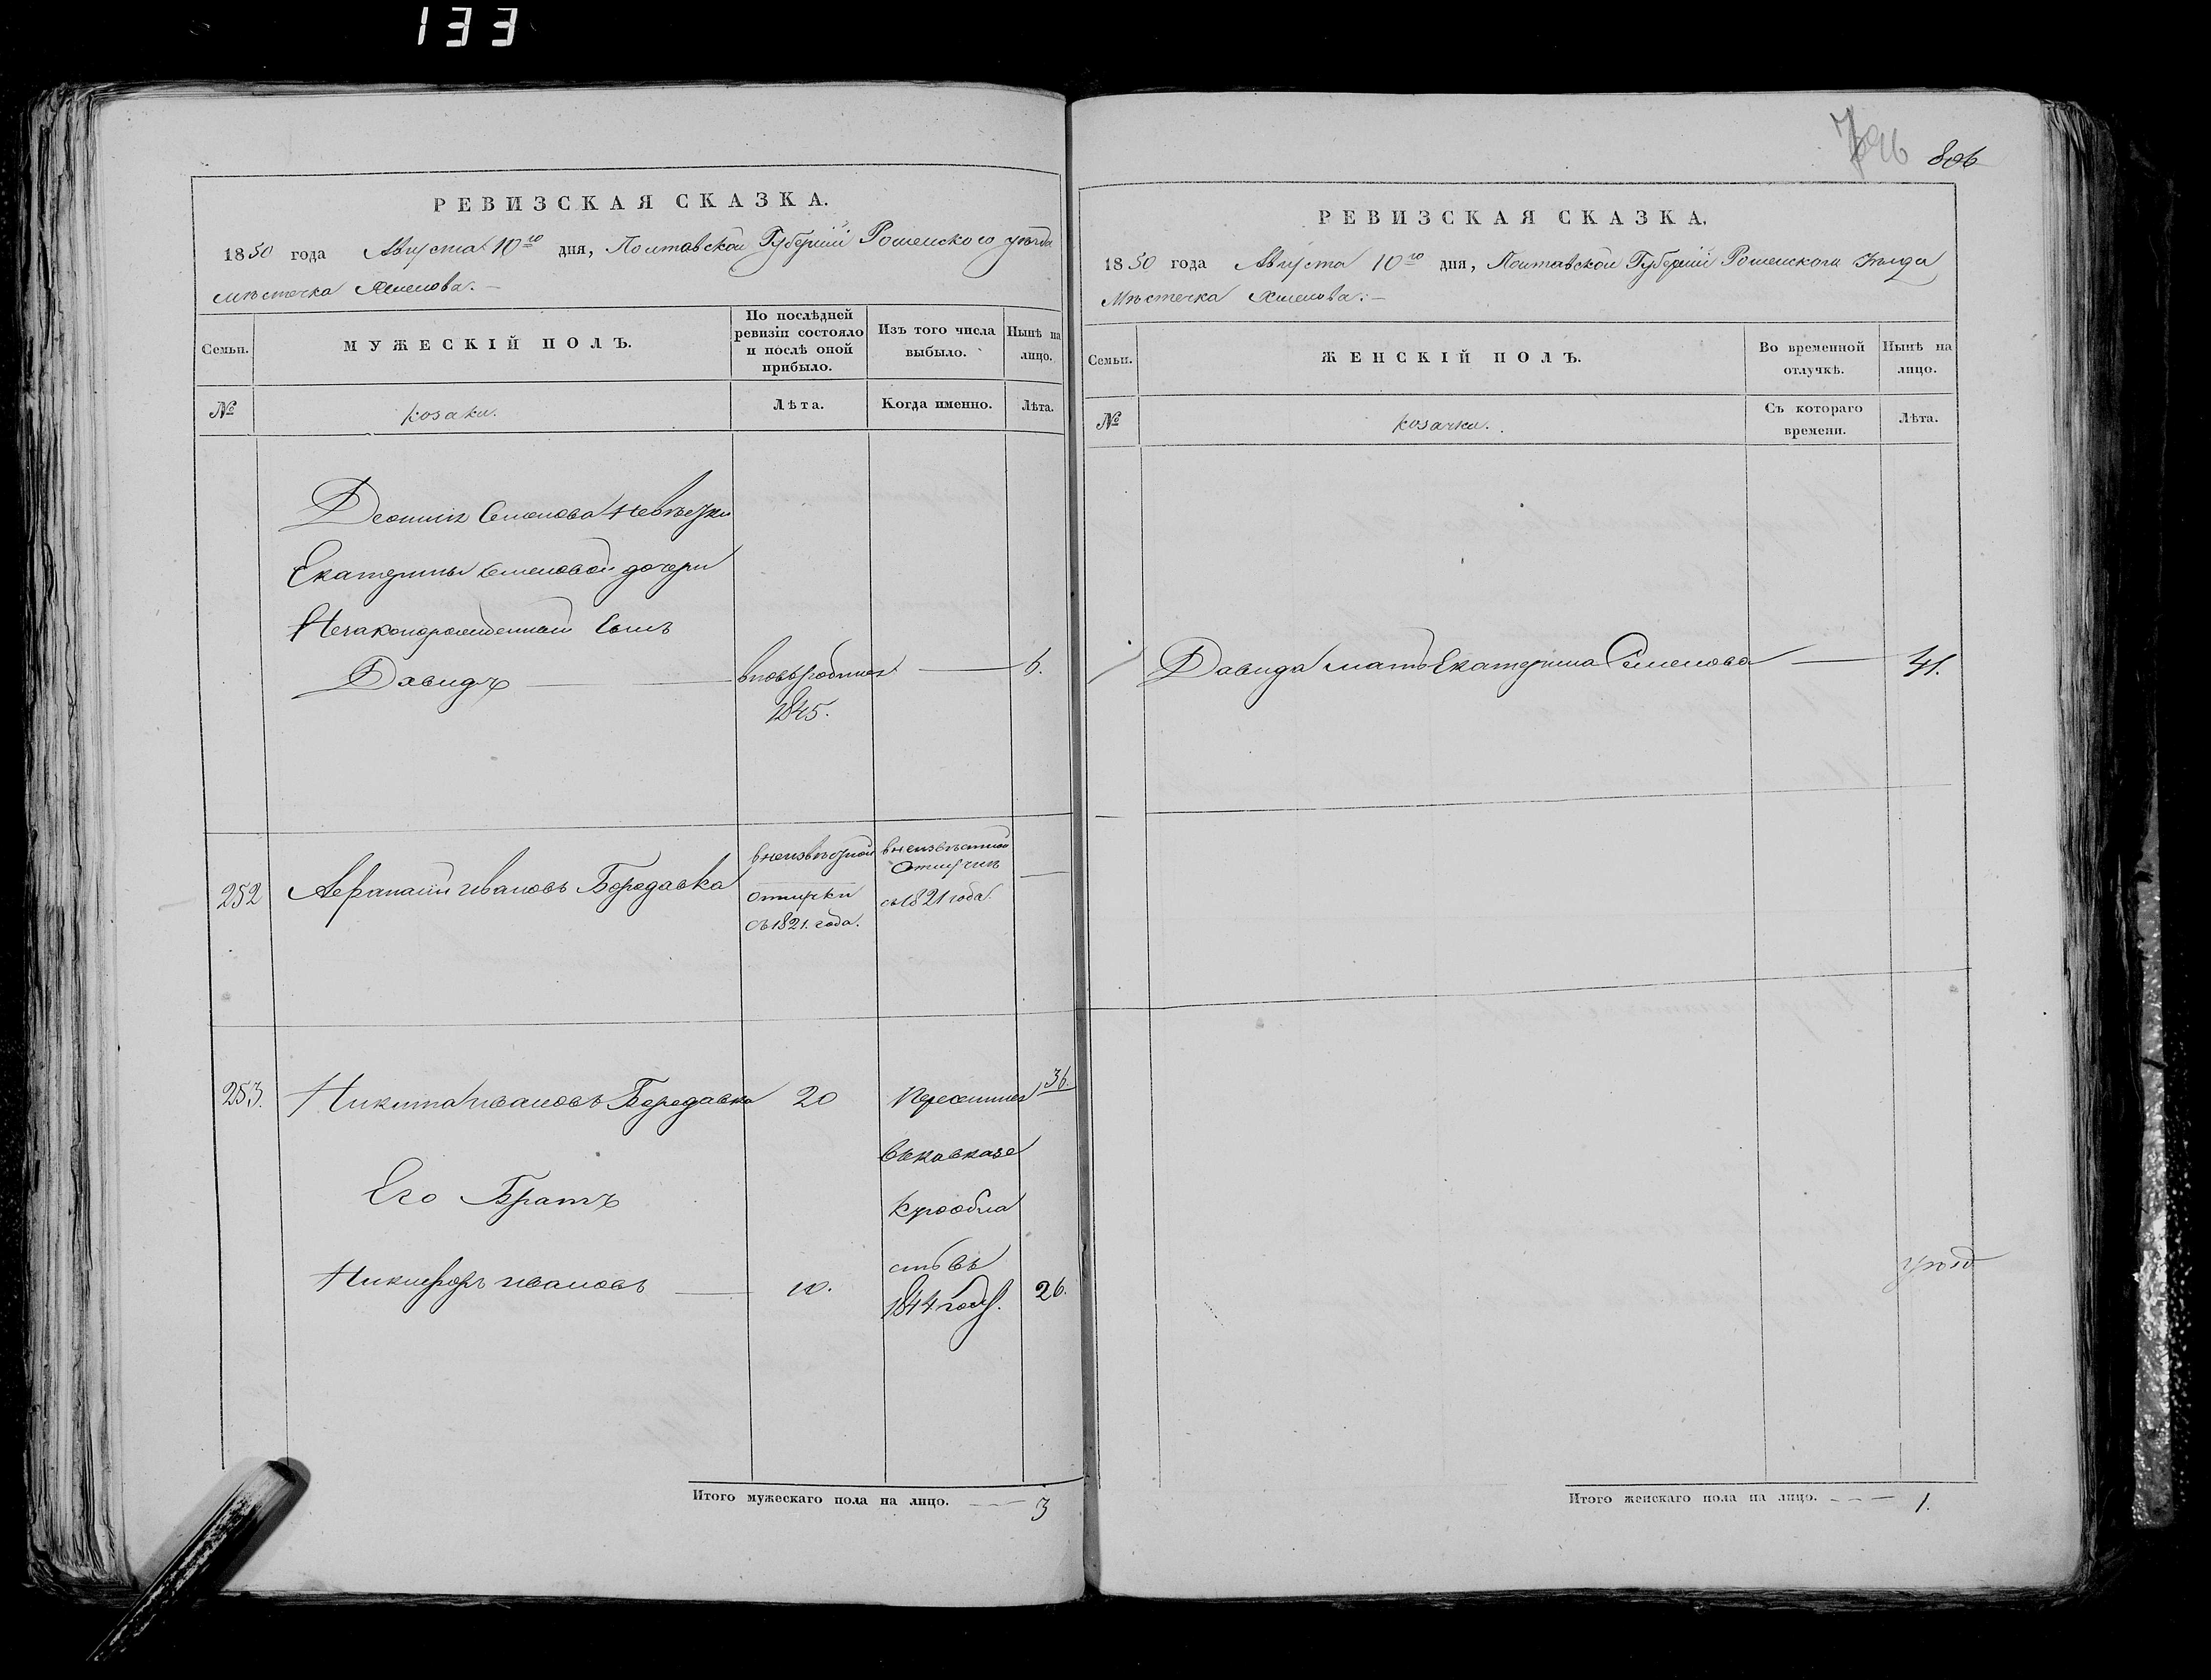 133
796 806
РЕВИЗСКАЯ СКАЗКА.
1850 года Августа 10го дня, Полтавской Губерніи Роменского уѣзда
мѣстечка Хмелова.
Семьи.
МУЖЕСКІЙ ПОЛЪ.
По послѣдней ревизіи состояло и послѣ оной прибыло.
Изъ того числа выбыло.
Нынѣ на лицо.
№
козаки.
Лѣта.
Когда именно.
Лѣта.
Семенова
Екатерины Семеновой дочери
Незаконорожденный Сынъ
Давидъ вновьродился 6.
1845.
252 Афанасій Ивановъ Бородавка
в неизвѣстной
отлучки
съ 1821. года.
в неизвѣстной
отлучкѣ
съ 1821 года.
253. Никита Ивановъ Бородавка 20 36.
Его Братъ
Никифоръ Ивановъ 10. 26.
въ кавказс
кую обла
сть въ
1844 году.
Итого мужескаго пола на лицо. 3
РЕВИЗСКАЯ СКАЗКА.
1850 года Августа 10го дня, Полтавской Губерніи Роменского Уѣзда
Мѣстечка Хмелова.
Семьи.
ЖЕНСКІЙ ПОЛЪ.
Во временной отлучкѣ.
Нынѣ на лицо.
№
козачки.
Съ котораго времени.
Лѣта.
Давида мать Екатерина Семенова 41.
Итого женскаго пола на лицо. 1.